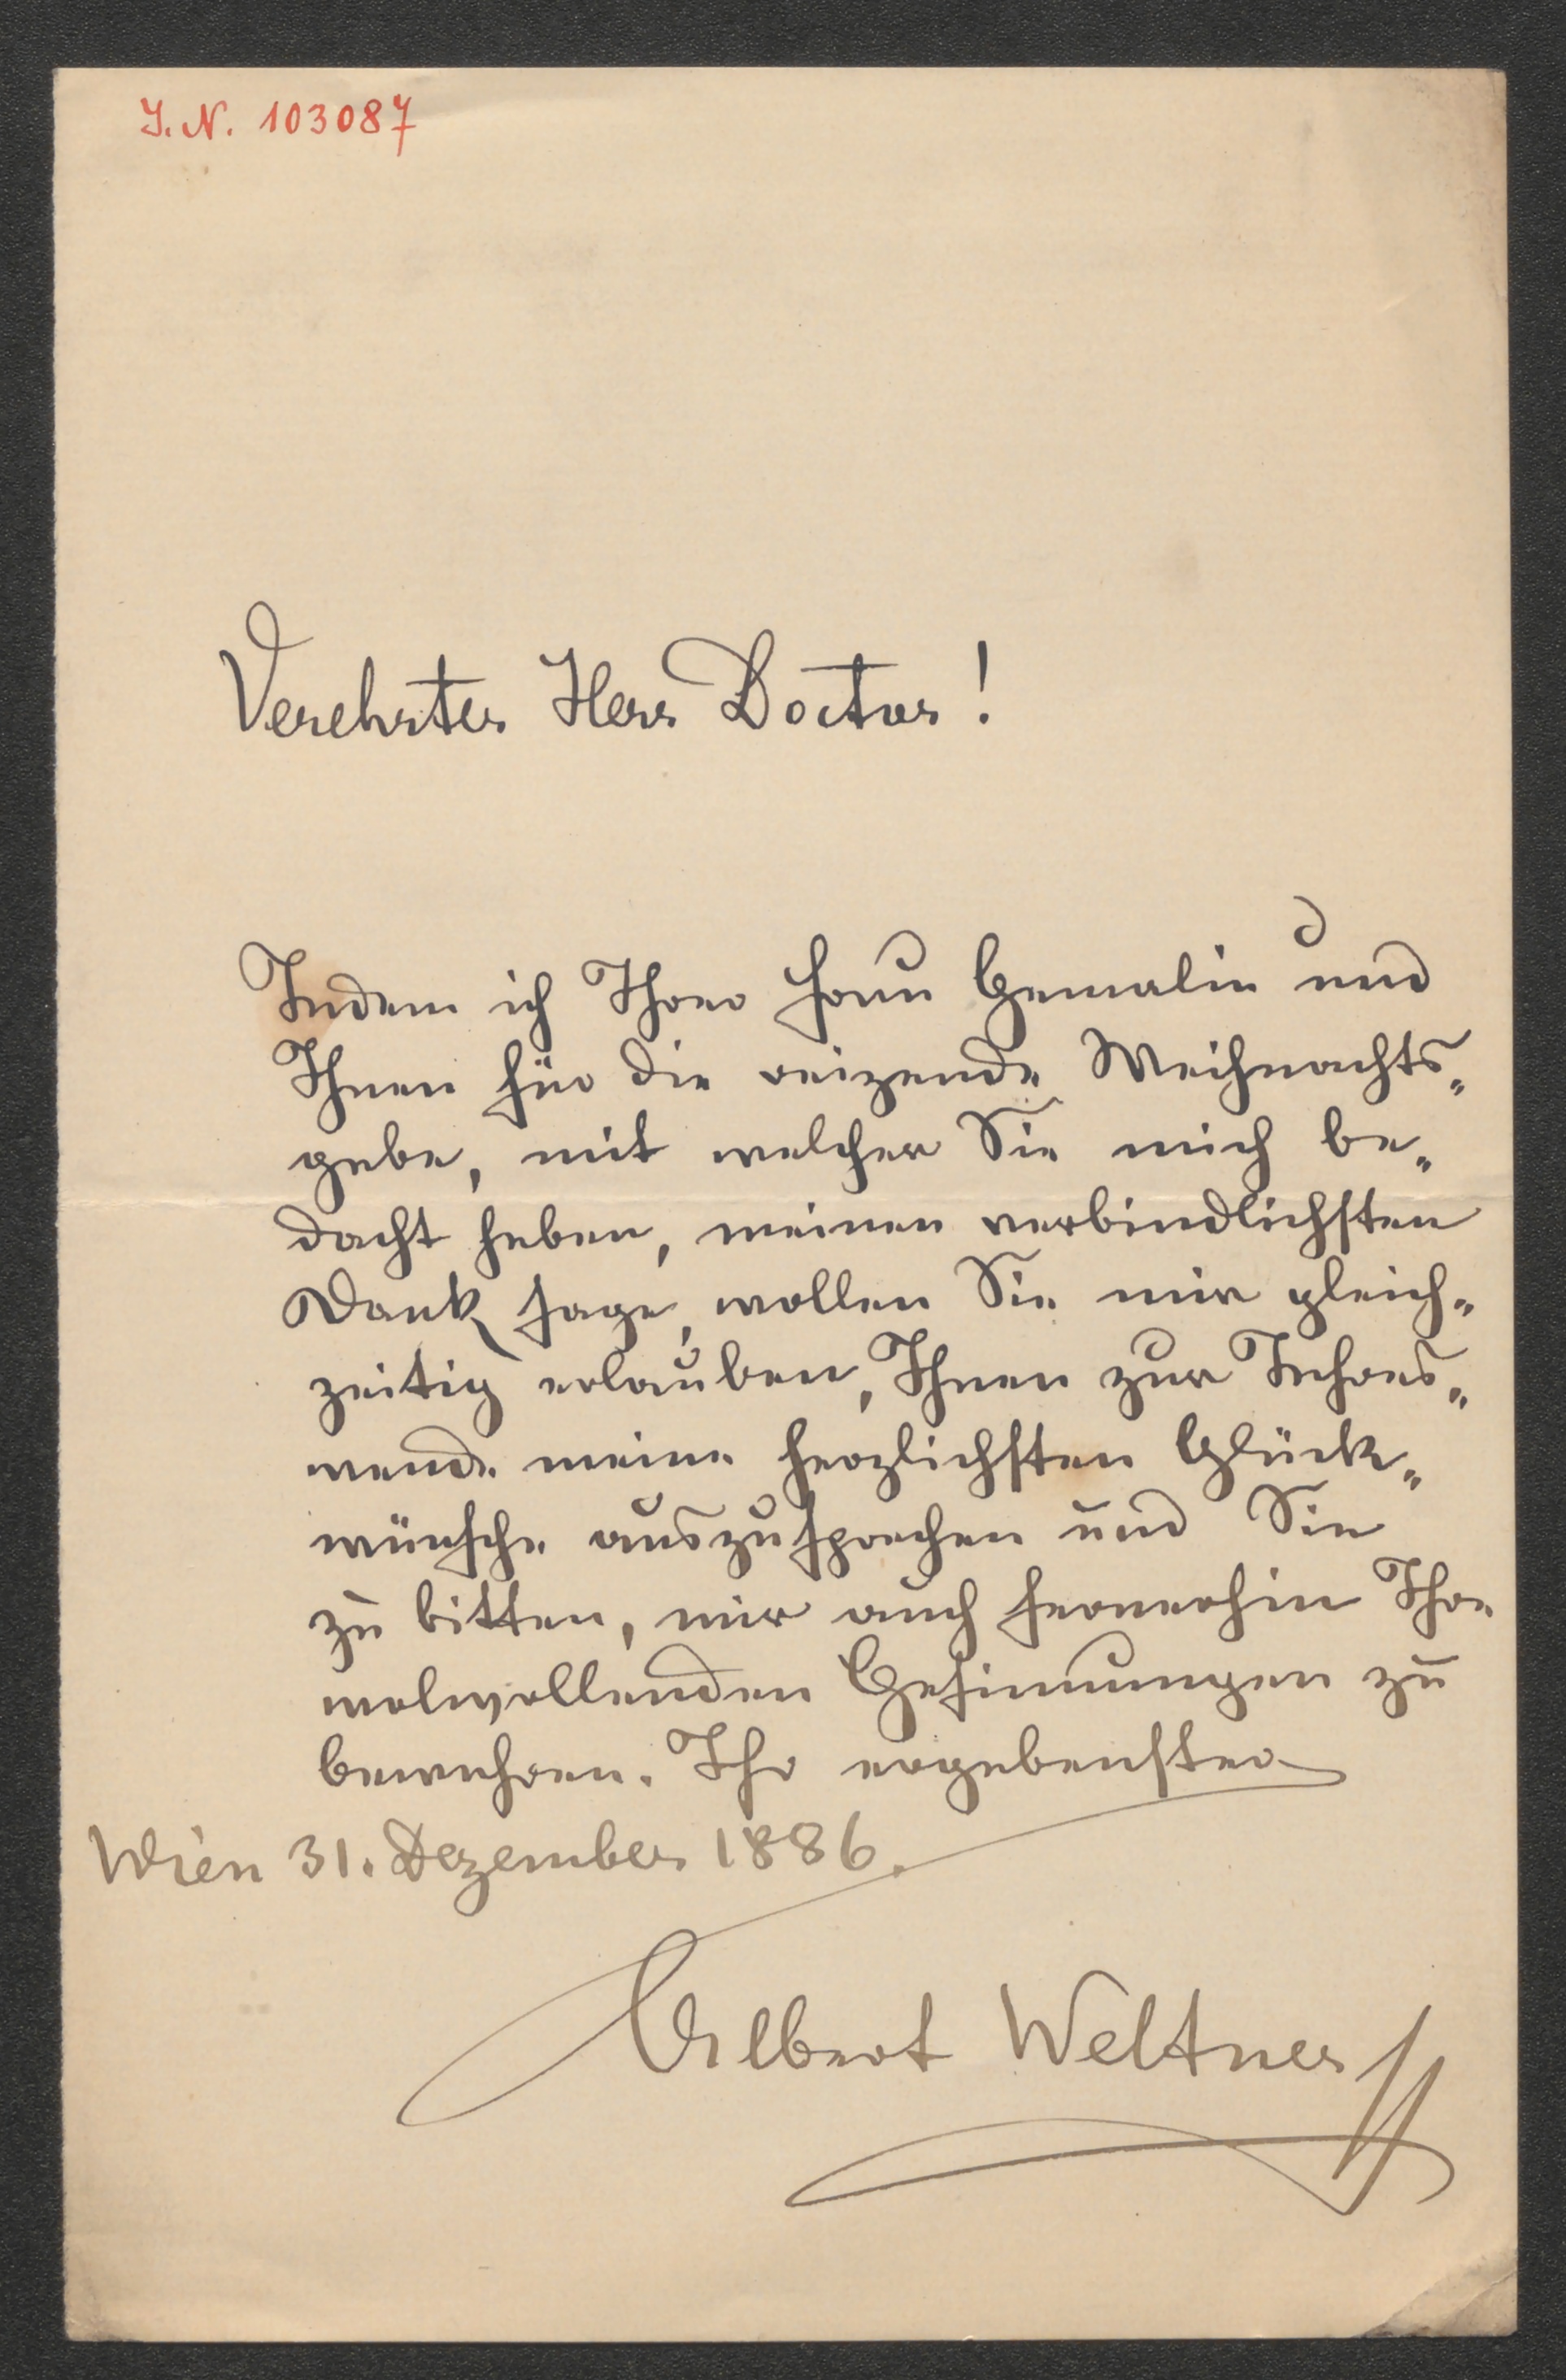 I. N. 103087
Verehrter Herr Doctor!
Indem ich Ihrer Frau Gemalin und
Ihnen für die reizende Weihnachts„
gabe, mit welcher Sie mich be„
dacht haben, meinen verbindlichsten
Dank sage, wollen Sie mir gleich„
zeitig erlauben, Ihnen zur Jahres„
wende meine herzlichsten Glück„
wünsche auszusprechen und Sie
zu bitten, mir auch fernerhin Ihre
wolwollenden Gesinnungen zu
bewahren. Ihr ergebenster
Wien 31. Dezember 1886.
Albert Weltner